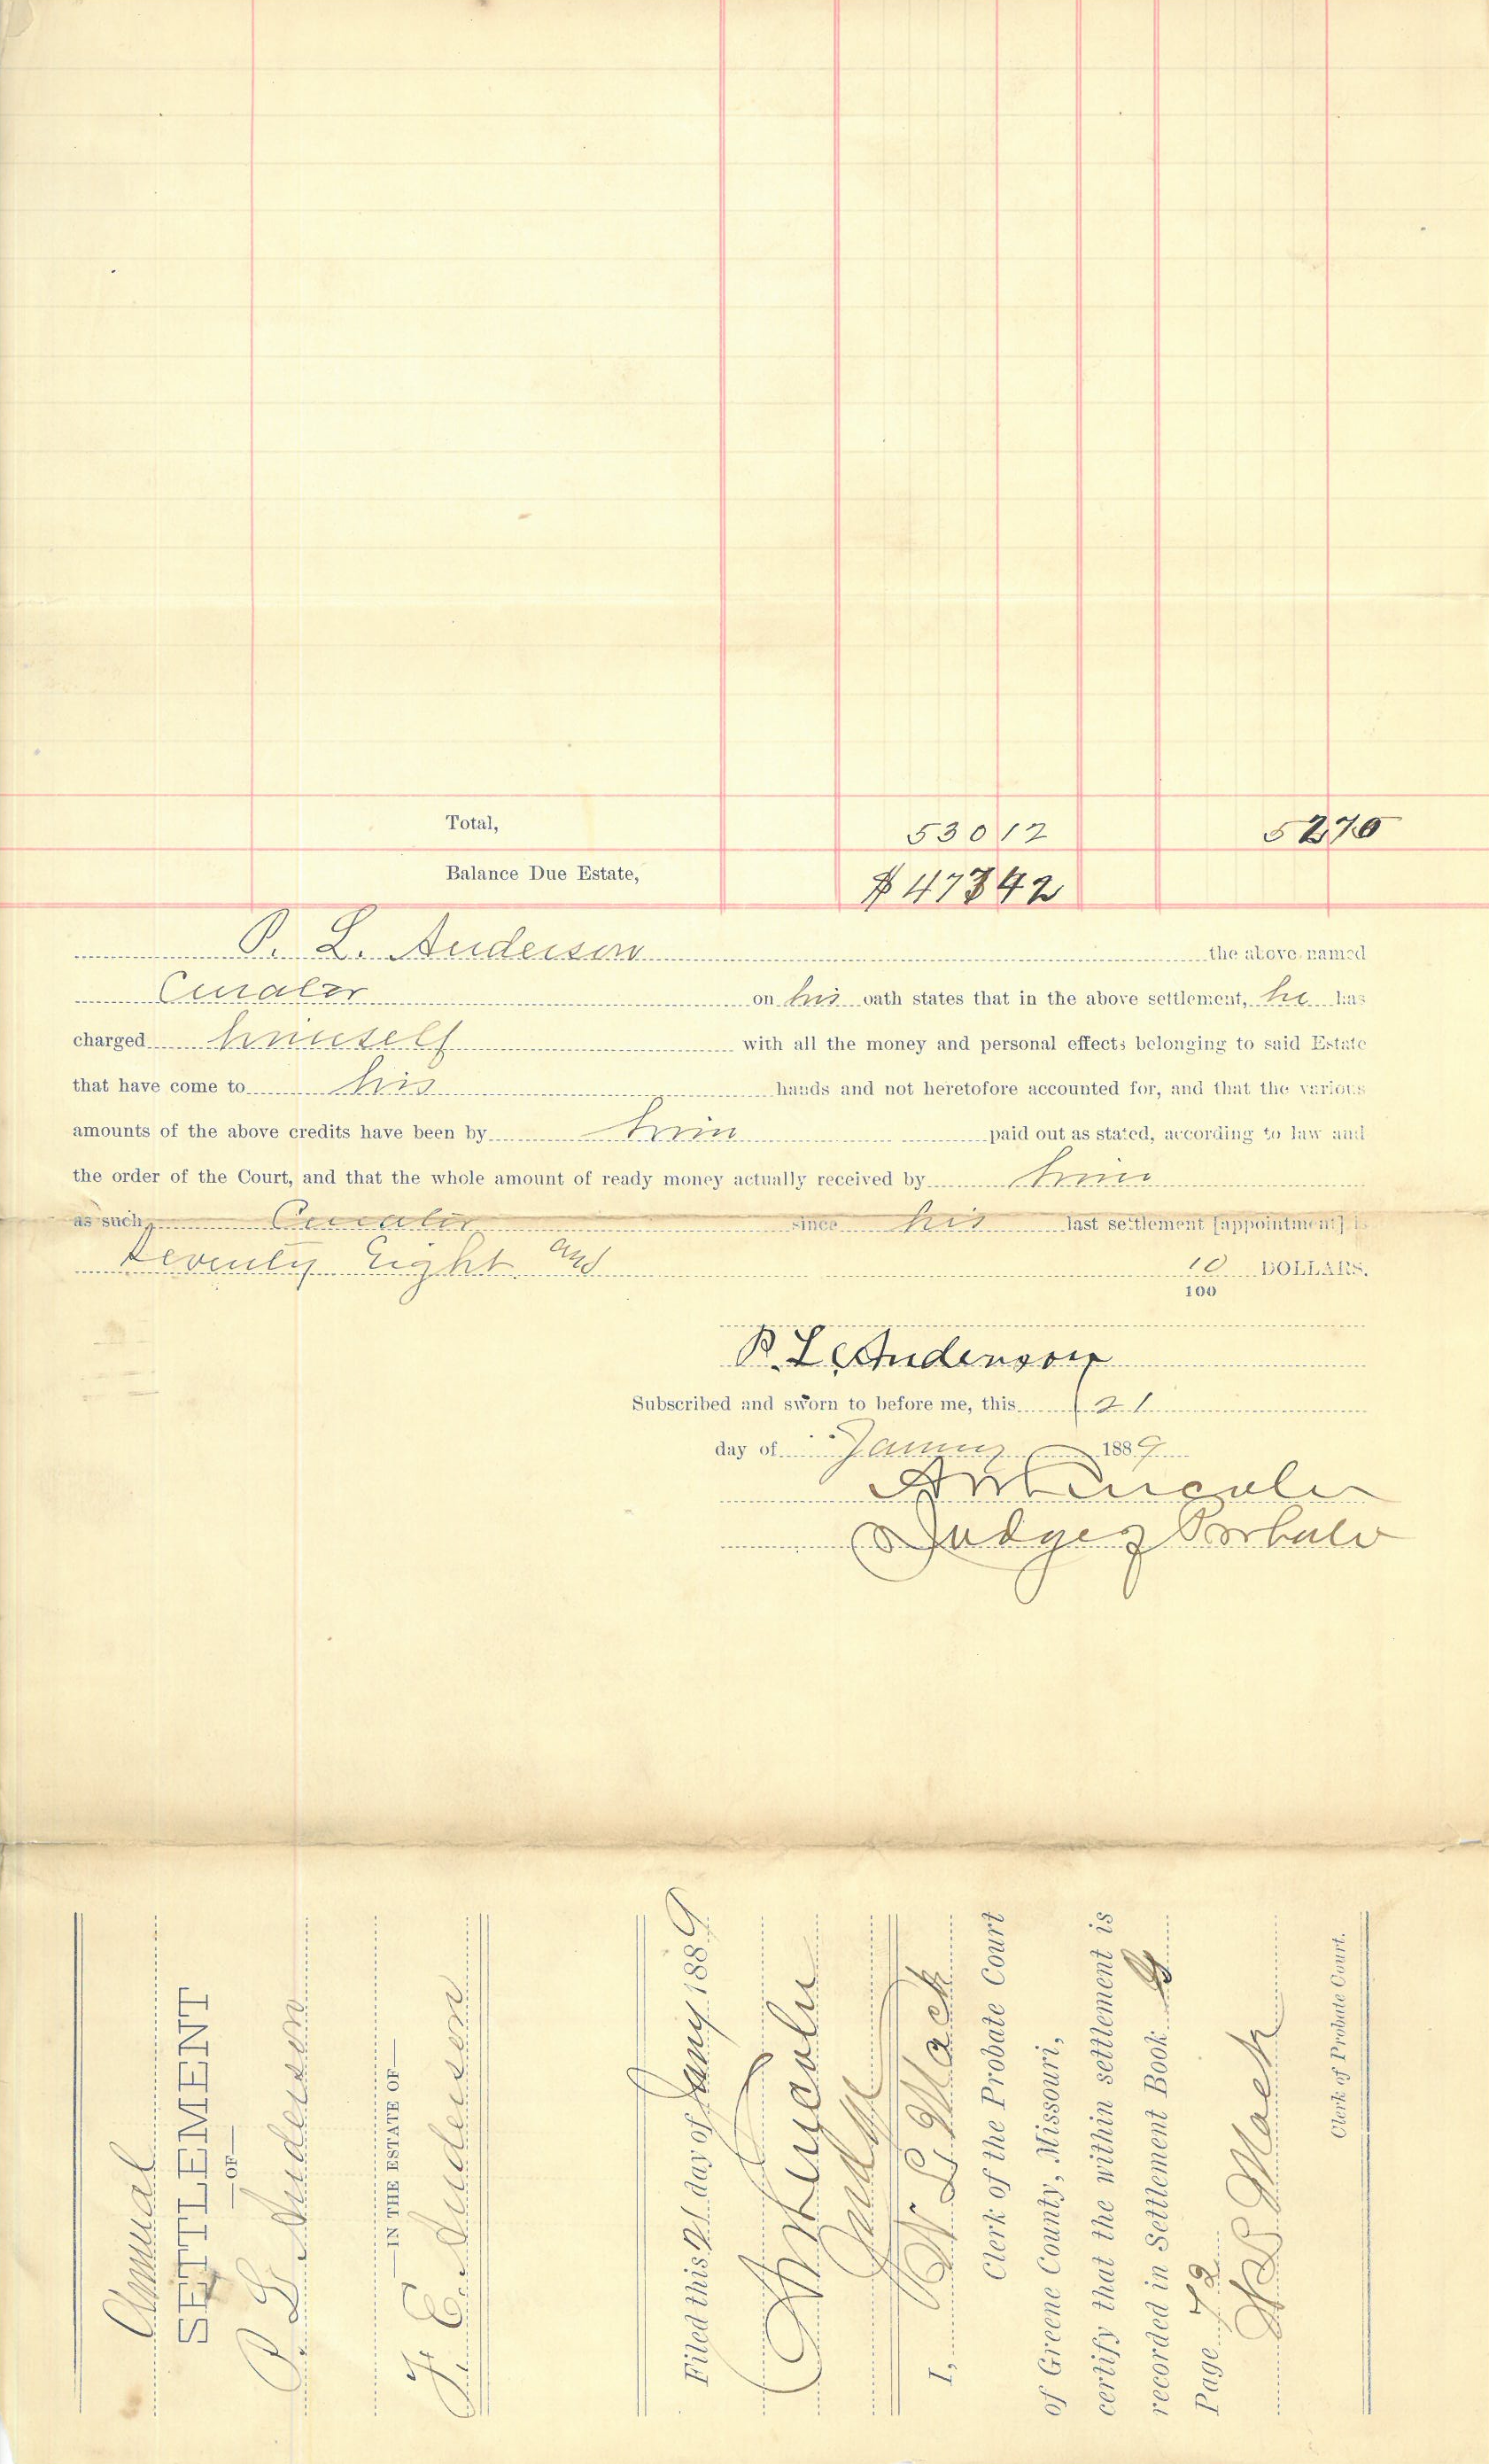 Total, 530 12 52 70
Balance Due Estate, $473 42
P. L. Anderson the above named
Curator on his oath states that in the above settlement, he has
charged himself with all the money and personal effects belonging to said Estate
that have come to his hands and not heretofore accounted for, and that the various
amounts of the above credits have been by him paid out as stated, according to law and
the order of the Court, and that the whole amount of ready money actually received by him
as such Curator since his last settlement [appointment] is
Seventy Eight and 10/100 DOLLARS.
P. L. Anderson
Subscribed and sworn to before me, this 21
day of January 1889
Lincoln
Judge of Probate
Annual
SETTLEMENT
—OF—
P. L. Anderson
—IN THE ESTATE OF—
J. E. Anderson
Filed this 21 day of Jany 1889
Lincoln
Judge
I, W L Mack
Clerk of the Probate Court
of Greene County, Missouri,
certify that the within settlement is
recorded in Settlement Book
Page 72
W L Mack
Clerk of Probate Court.